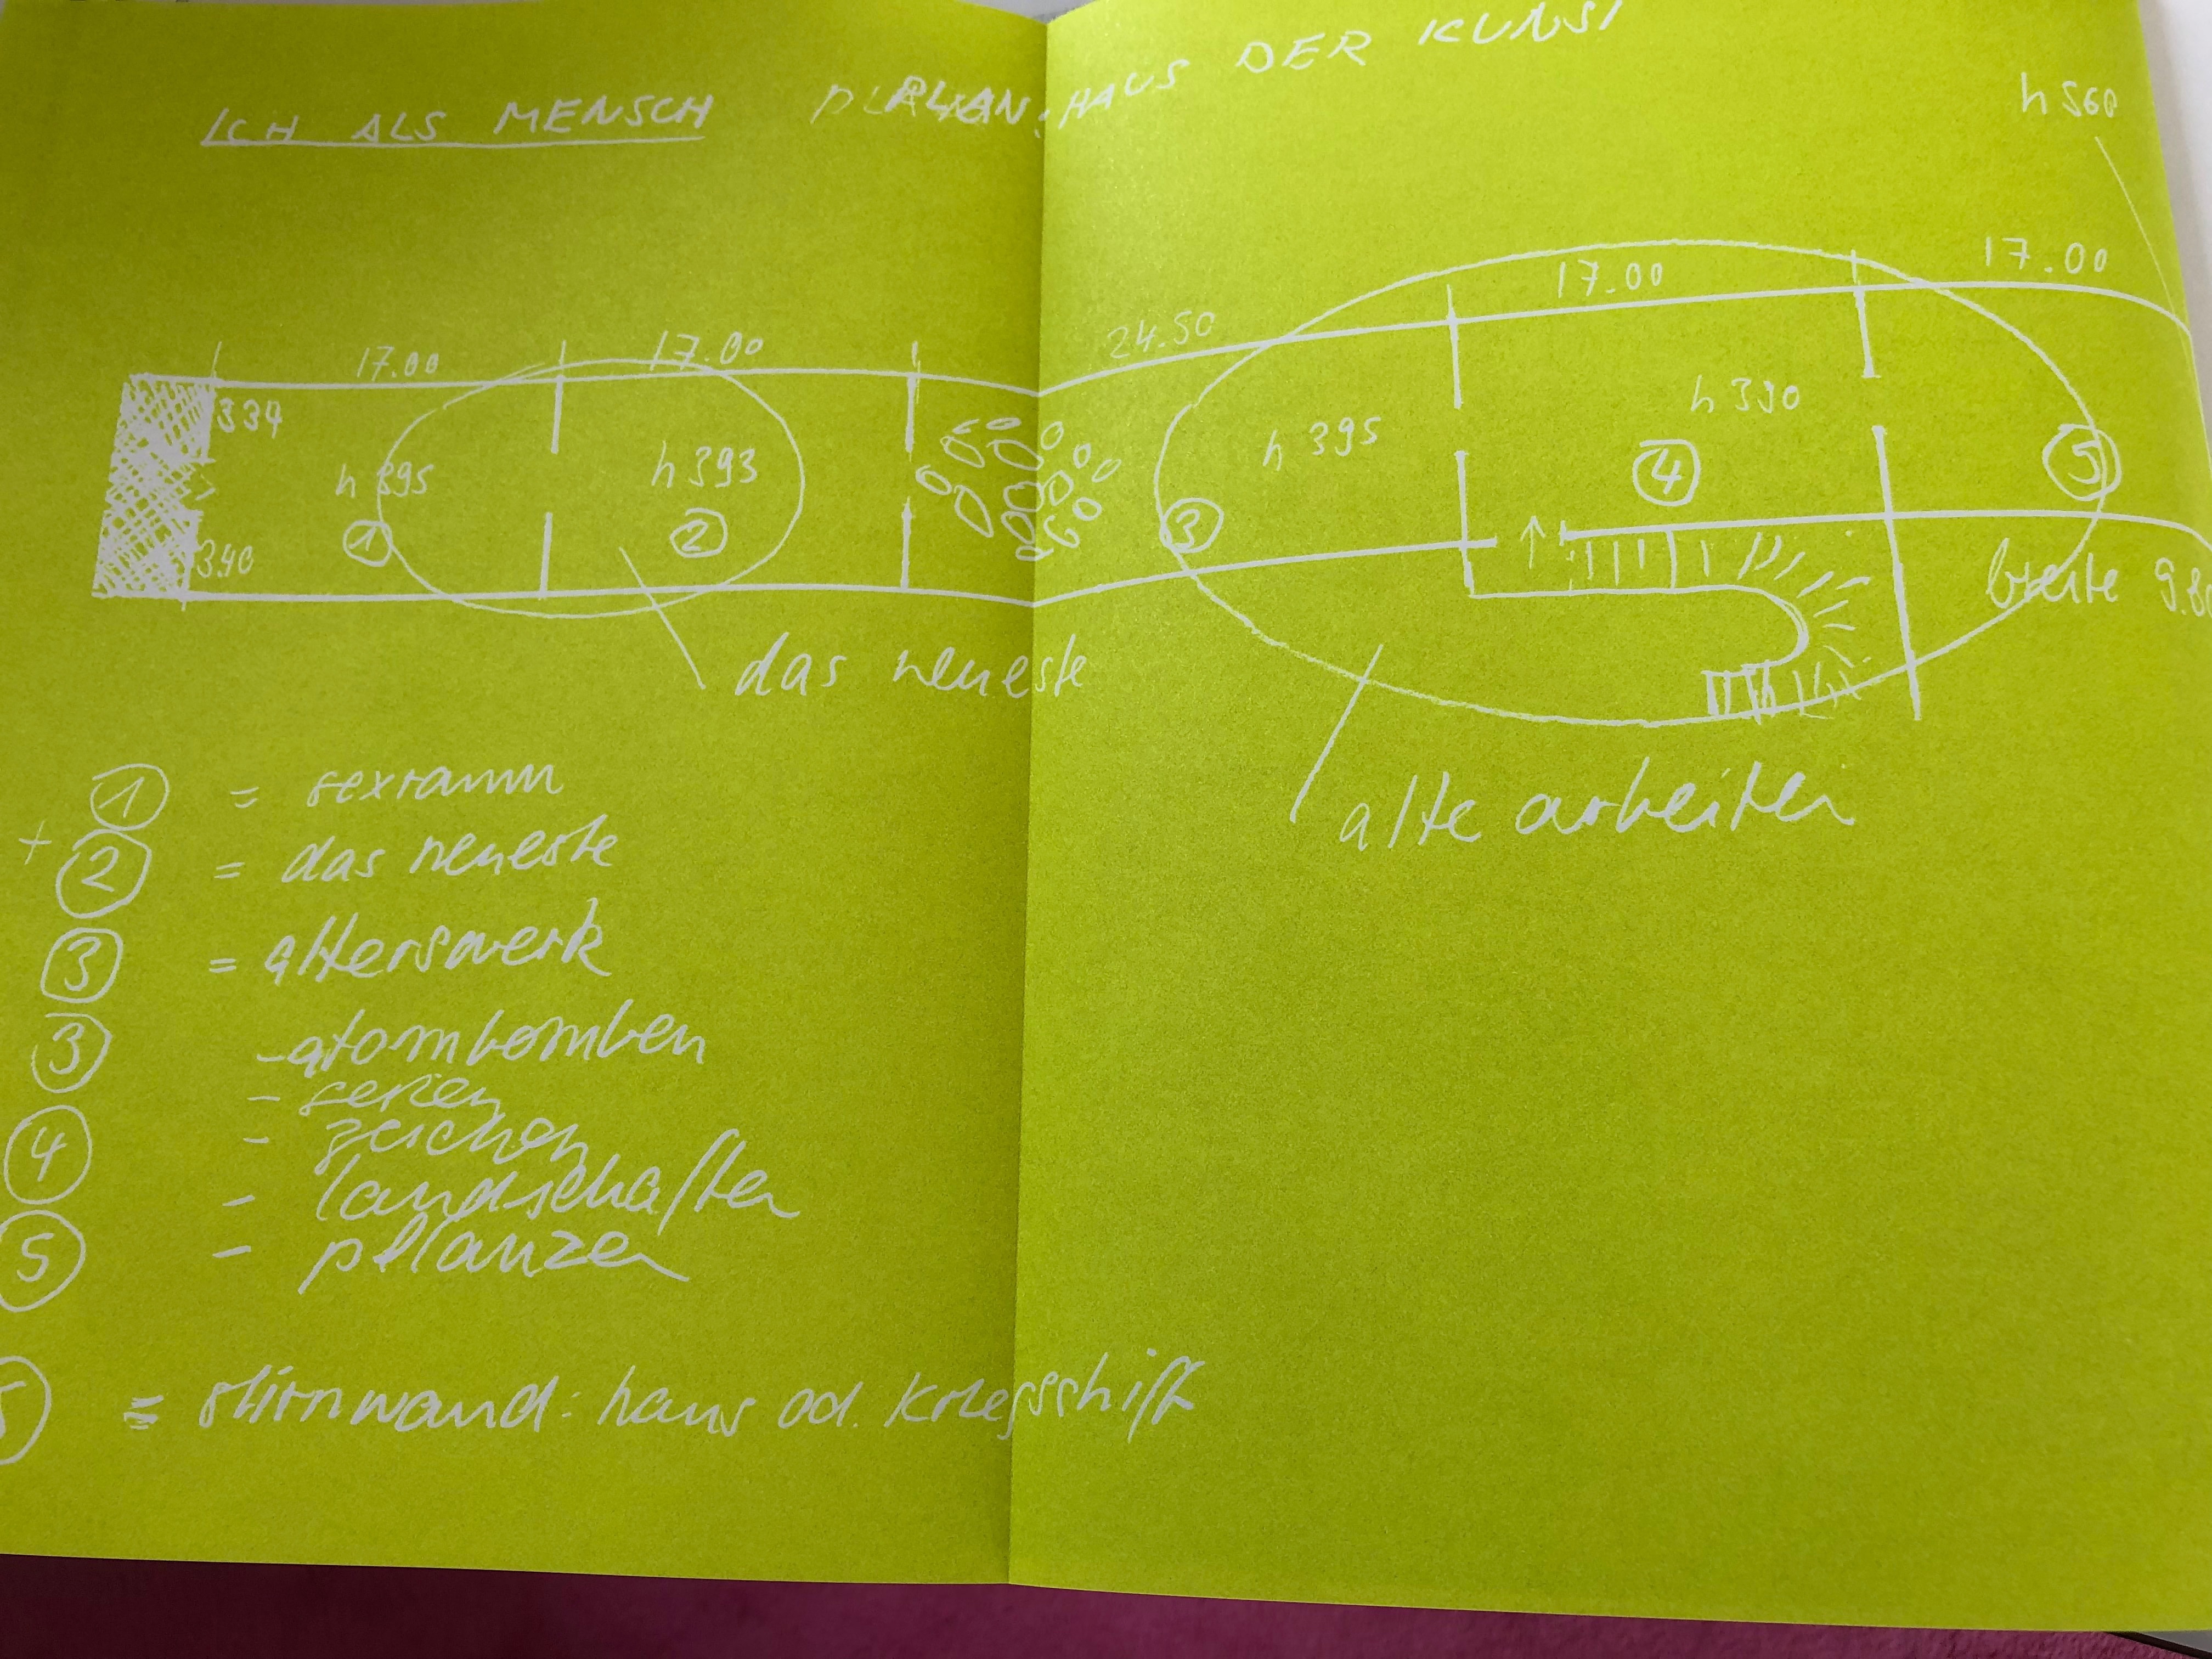 ICH ALS MENSCH PLAN: HAUS DER KUNST
h 560
17.00 17.00 24.50 17.00 17.00
334 h 395 h 393 h 395 h 390
1 2 3 4 5
340
breite 9.80
das neueste
alte arbeiten
1 = sexraum
+
2 = das neueste
3 = alterswerk
3 - atombomben
- serien
4 - zeichen
- landschaften
5 - pflanzen
5 = stirnwand: haus od. kriegsschiff